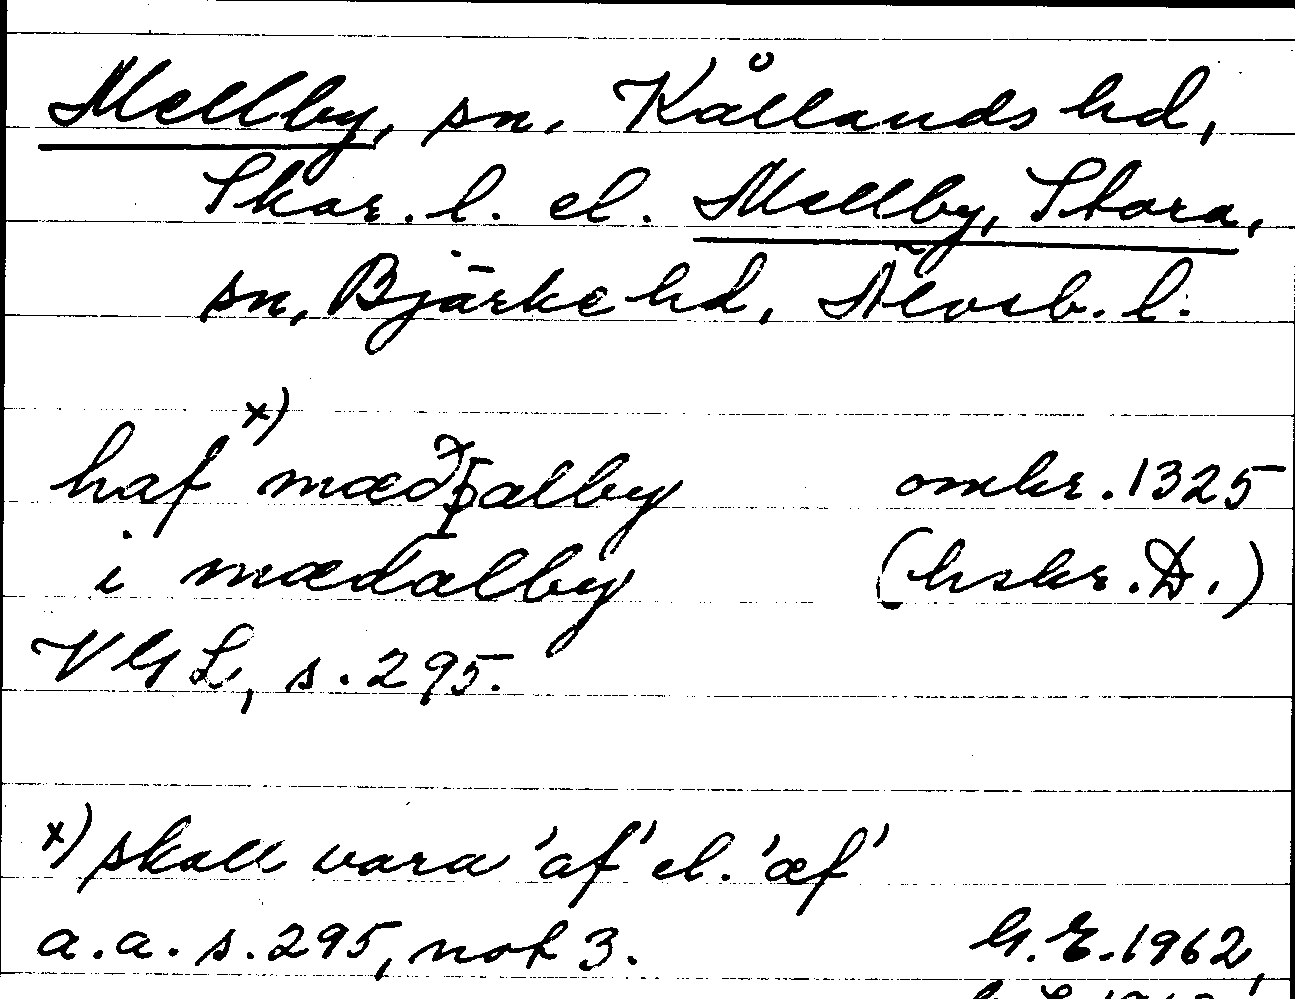 Mellby, sn, Kållands hd,
Skar. l. el. Mellby, Stora,
sn, Bjärke hd, Älvsb. l.
haf x) mædþalby omkr. 1325
i mædalby (hskr. D.)
VGL, s. 295.
x) skall vara 'af' el. 'æf'
a.a. s. 295, not 3. G.E. 1962,